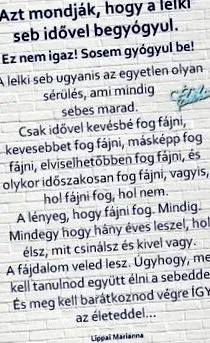 Azt mondják, hogy a lelki
seb idővel begyógyul.
Ez nem igaz! Sosem gyógyul be!
A lelki seb ugyanis az egyetlen olyan
sérülés, ami mindig
sebes marad.
Csak idővel kevésbé fog fájni,
kevesebbet fog fájni, másképp fog
fájni, elviselhetőbben fog fájni, és
olykor időszakosan fog fájni, vagyis,
hol fájni fog, hol nem.
A lényeg, hogy fájni fog. Mindig.
Mindegy hogy hány éves leszel, hol
élsz, mit csinálsz és kivel vagy.
A fájdalom veled lesz. Úgyhogy, meg
kell tanulnod együtt élni a sebeddel
És meg kell barátkoznod végre ÍGY
az életeddel...
Lippai Marianna